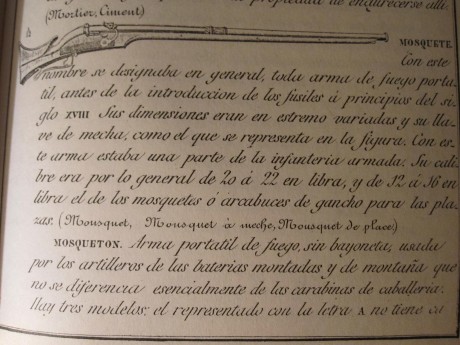 propiedad de endurecerse alli
(Mortier, Ciment)
MOSQUETE.
Con este
nombre se designaba en general, toda arma de fuego porta
til, antes de la introduccion de los fusiles á principios del si
glo XVIII Sus dimensiones eran en estremo variadas y su lla
ve de mecha, como el que se representa en la figura. Con es
te arma estaba una parte de la infanteria armada. Su cali
bre era por lo general de 20 á 22 en libra, y de 12 á 16 en
libra el de los mosquetes ó arcabuces de gancho para las pla
zas. (Mousquet, Mousquet à meche, Mousquet de place)
MOSQUETON. Arma portatil de fuego, sin bayoneta, usada
por los artilleros de las baterias montadas y de montaña que
no se diferencia esencialmente de las carabinas de caballeria.
Hay tres modelos; el representado con la letra A no tiene ca